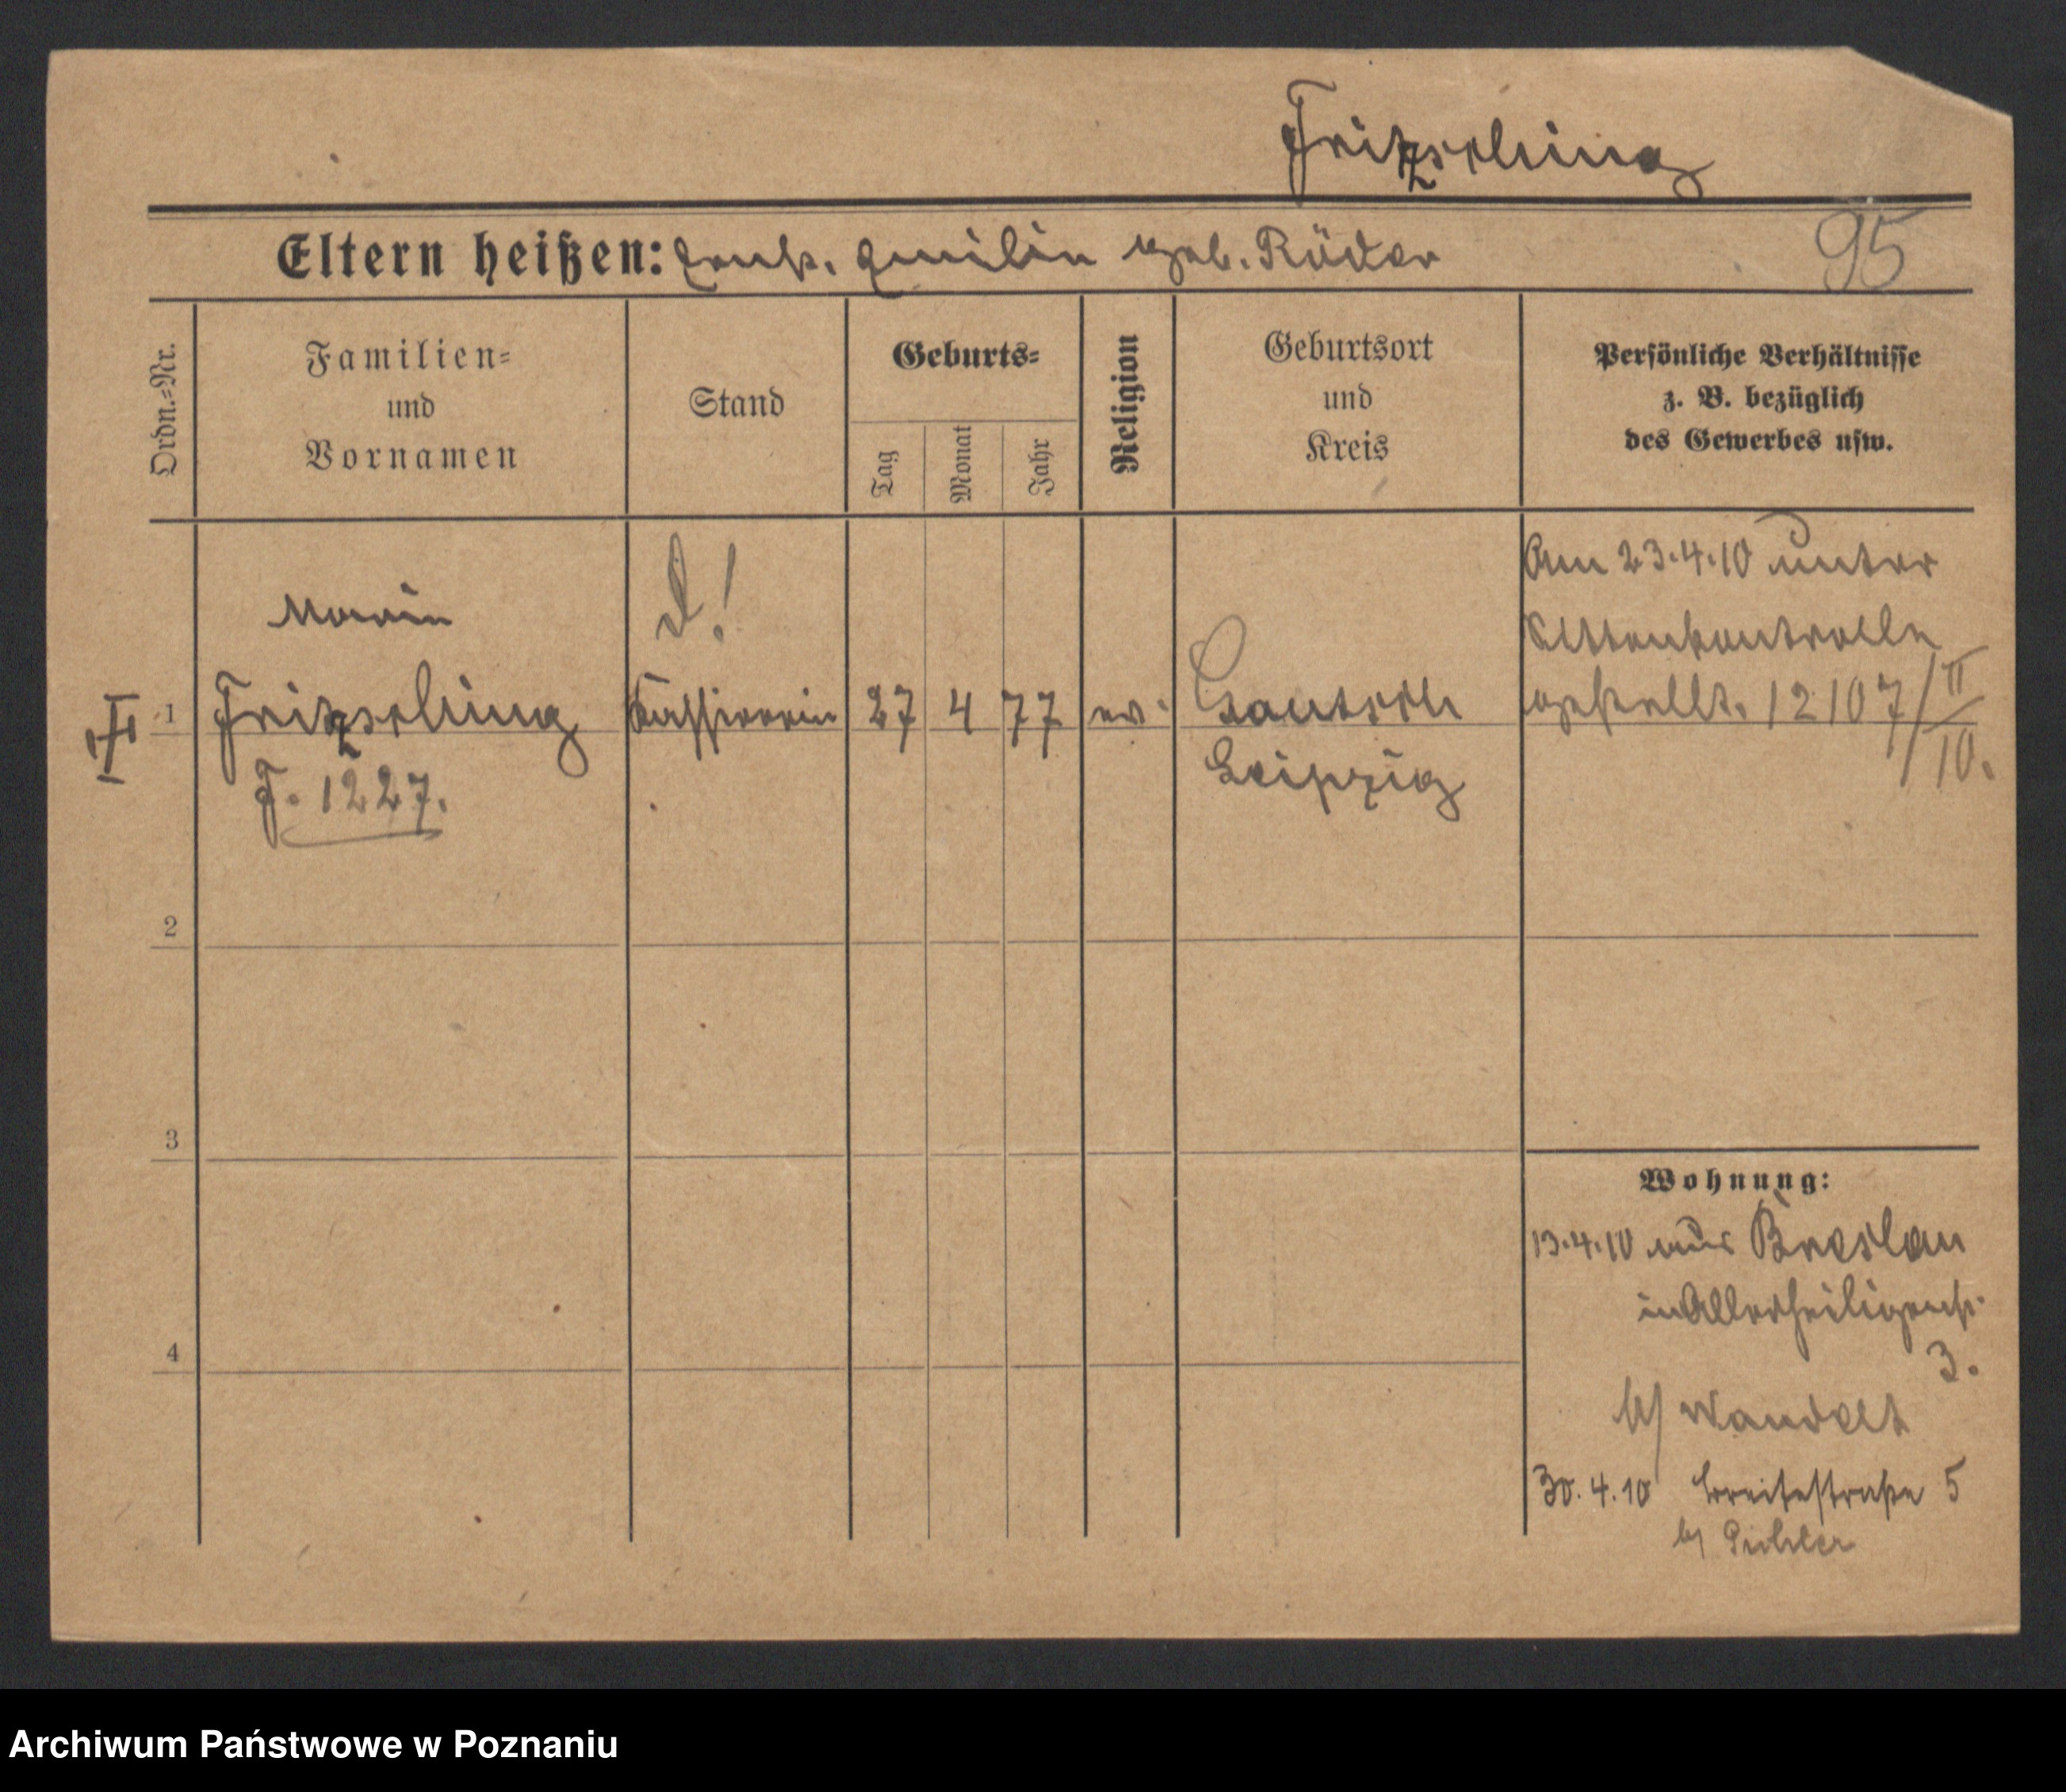 Fritzsching
Eltern heißen: Ernst. Emilie geb. Röder
95
Ordn.=Nr.
Familien=
und
Vornamen
Stand
Geburts=
Tag
Monat
Jahr
Religion
Geburtsort
und
Kreis
Persönliche Verhältnisse
z. B. bezüglich
des Gewerbes usw.
Am 23.4.10 unter
Aktenkontrolle
gestellt. 12107/II
10.
Marie
1
Fritzsching
Kassiererin
27
4
77
ev.
Gautsch
Leipzig
F. 1227.
2
3
4
Wohnung:
13.4.10 aus Breslau
in Allerheiligenst.
3.
b/ Wandelt
30.4.10 Breitestraße 5
b/
Archiwum Państwowe w Poznaniu